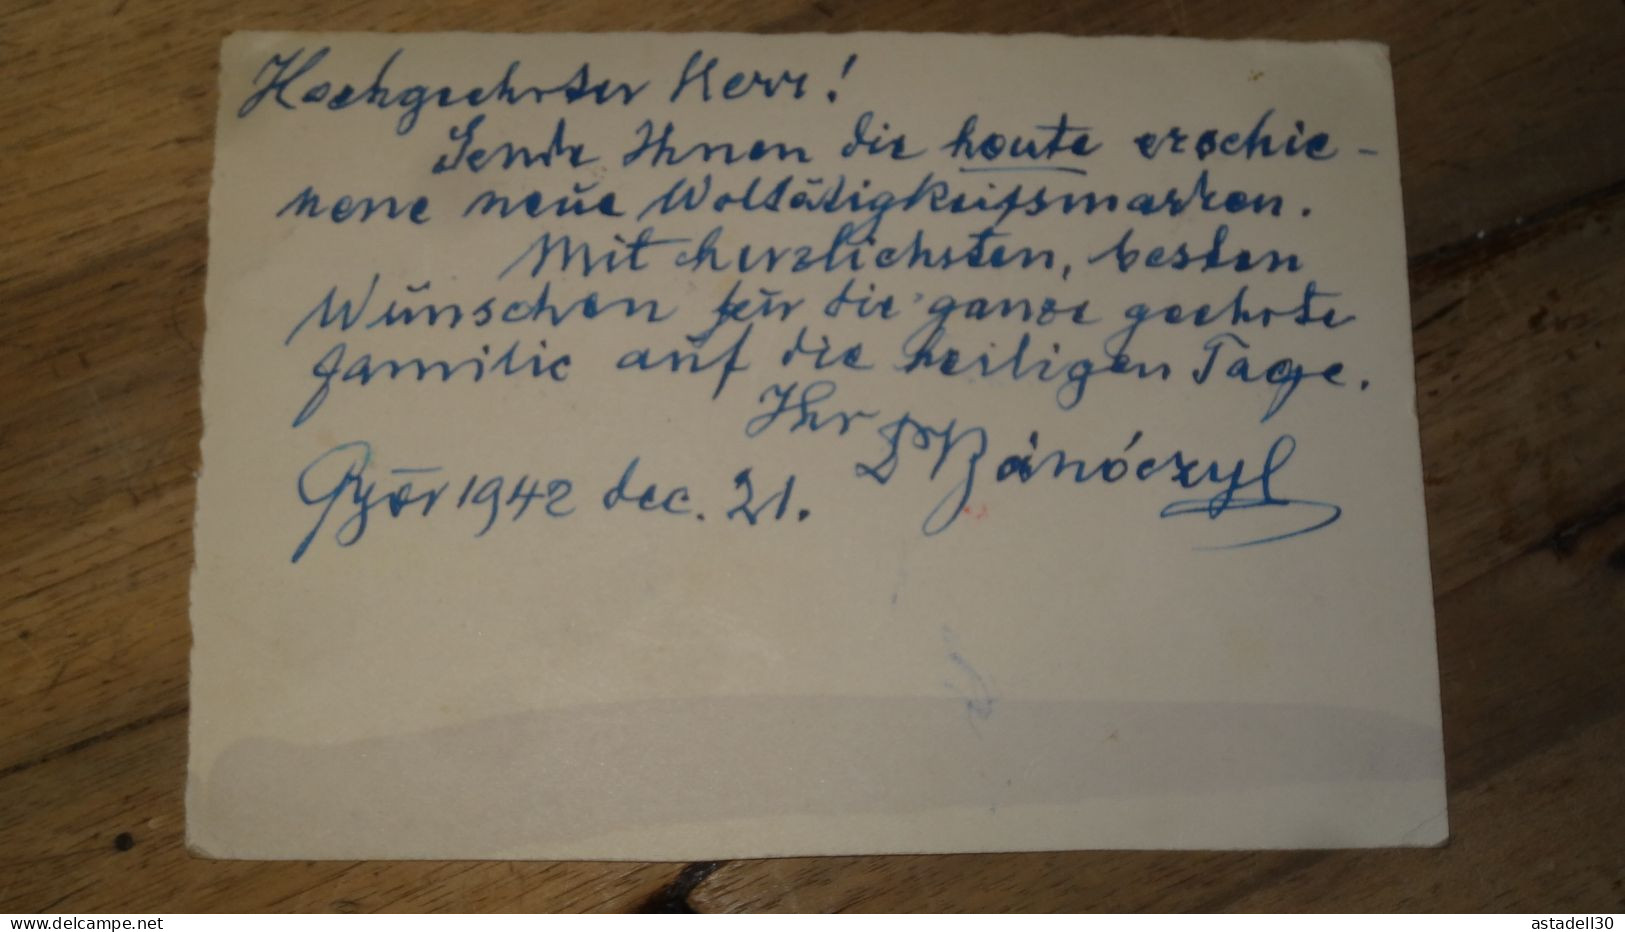 Hochgeehrter Herr!
Sende Ihnen die heute erschie-
nene neue Woltätigkeitsmarken.
Mit herzlichsten, besten
Wünschen für die ganze geehrte
Familie auf die heiligen Tage.
Ihr Dr Bánóczyl
Győr 1942 dec. 21.
© www.delcampe.net
astadell30